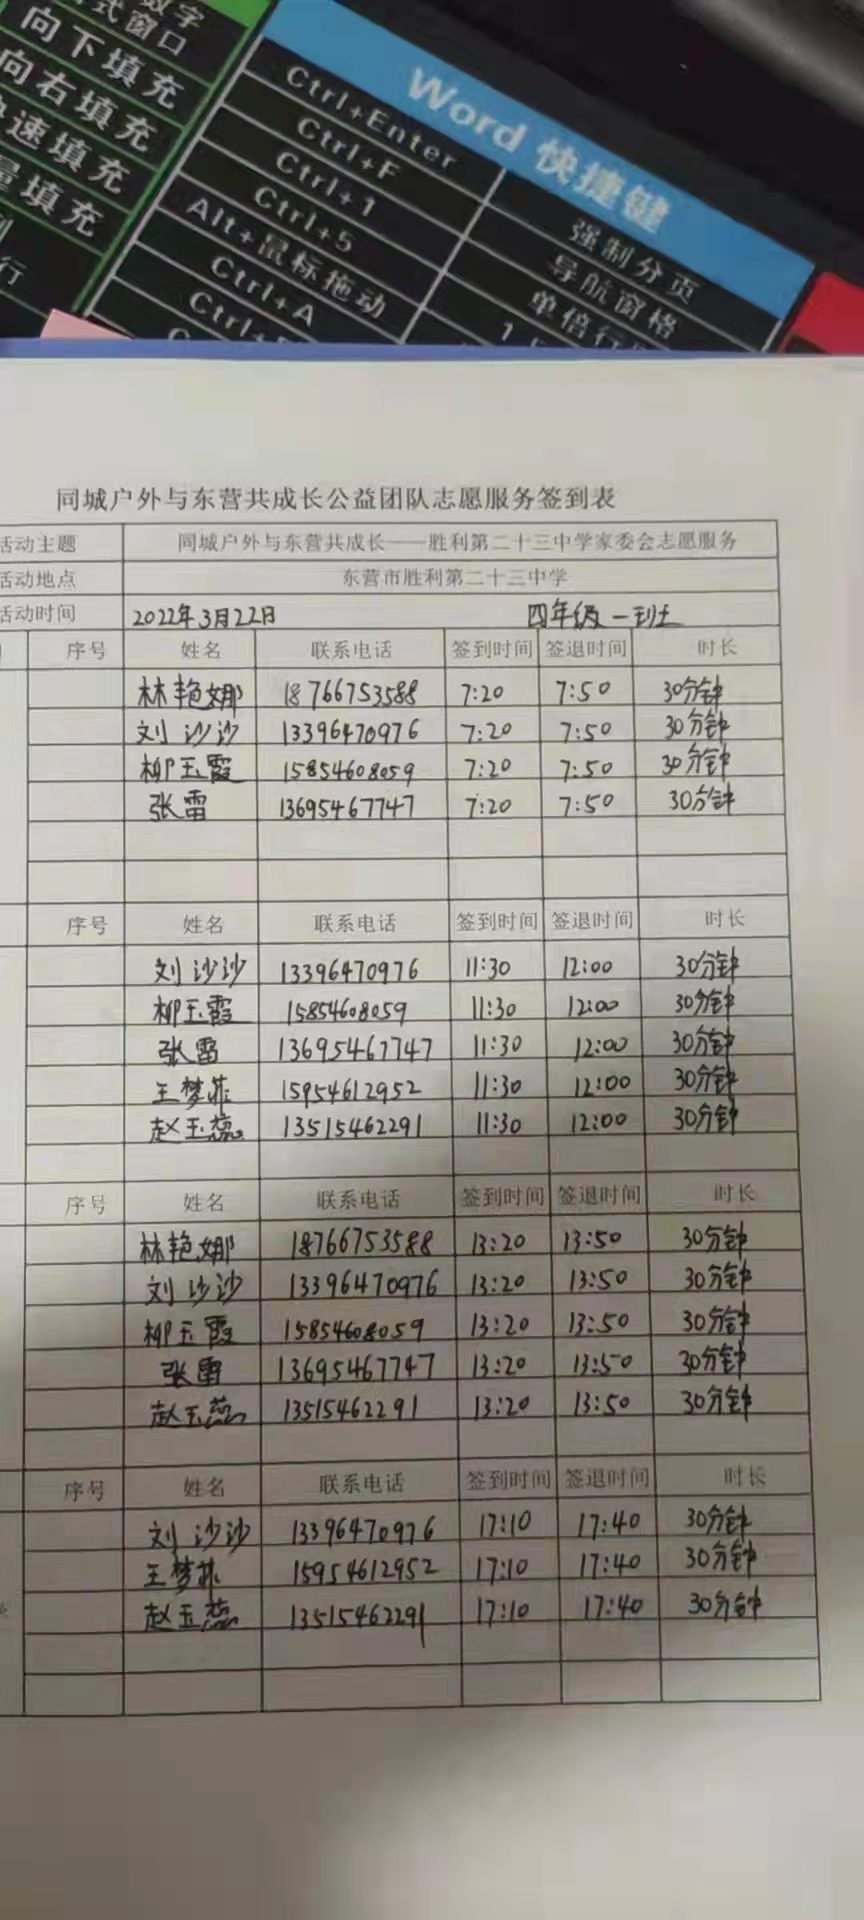 数字
式窗口
向下填充
向右填充
速填充
量填充
行
Word 快捷键
Ctrl+Enter 强制分页
Ctrl+F 导航窗格
Ctrl+1 单倍行
Ctrl+5 1
Alt+鼠标拖动
Ctrl+A
Ctrl+
同城户外与东营共成长公益团队志愿服务签到表
活动主题 同城户外与东营共成长——胜利第二十三中学家委会志愿服务
活动地点 东营市胜利第二十三中学
活动时间 2022年3月22日 四年级一
序号 姓名 联系电话 签到时间 签退时间 时长
林艳娜 18766753588 7:20 7:50 30分钟
刘沙沙 13396470976 7:20 7:50 30分钟
柳玉霞 15854608059 7:20 7:50 30分钟
张雷 13695467747 7:20 7:50 30分钟
序号 姓名 联系电话 签到时间 签退时间 时长
刘沙沙 13396470976 11:30 12:00 30分钟
柳玉霞 15854608059 11:30 12:00 30分钟
张雷 13695467747 11:30 12:00 30分钟
王梦菲 15954612952 11:30 12:00 30分钟
赵玉蕊 13515462291 11:30 12:00 30分钟
序号 姓名 联系电话 签到时间 签退时间 时长
林艳娜 18766753588 13:20 13:50 30分钟
刘沙沙 13396470976 13:20 13:50 30分钟
柳玉霞 15854608059 13:20 13:50 30分钟
张雷 13695467747 13:20 13:50 30分钟
赵玉蕊 13515462291 13:20 13:50 30分钟
序号 姓名 联系电话 签到时间 签退时间 时长
刘沙沙 13396470976 17:10 17:40 30分钟
王梦菲 15954612952 17:10 17:40 30分钟
赵玉蕊 13515462291 17:10 17:40 30分钟